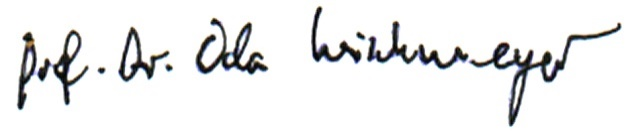 Prof. Dr. Oda Wischmeyer